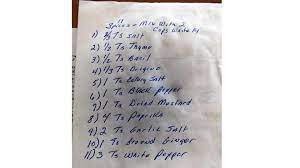 11 Spices - Mix With 2
Cups White Fl
1) 2/3 Ts Salt
2) 1/2 Ts Thyme
3) 1/2 Ts Basil
4) 1/3 Ts Origino
5) 1 Ts Celery Salt
6) 1 Ts Black Pepper
7) 1 Ts Dried Mustard
8) 4 Ts Paprika
9) 2 Ts Garlic Salt
10) 1 Ts Ground Ginger
11) 3 Ts White Pepper